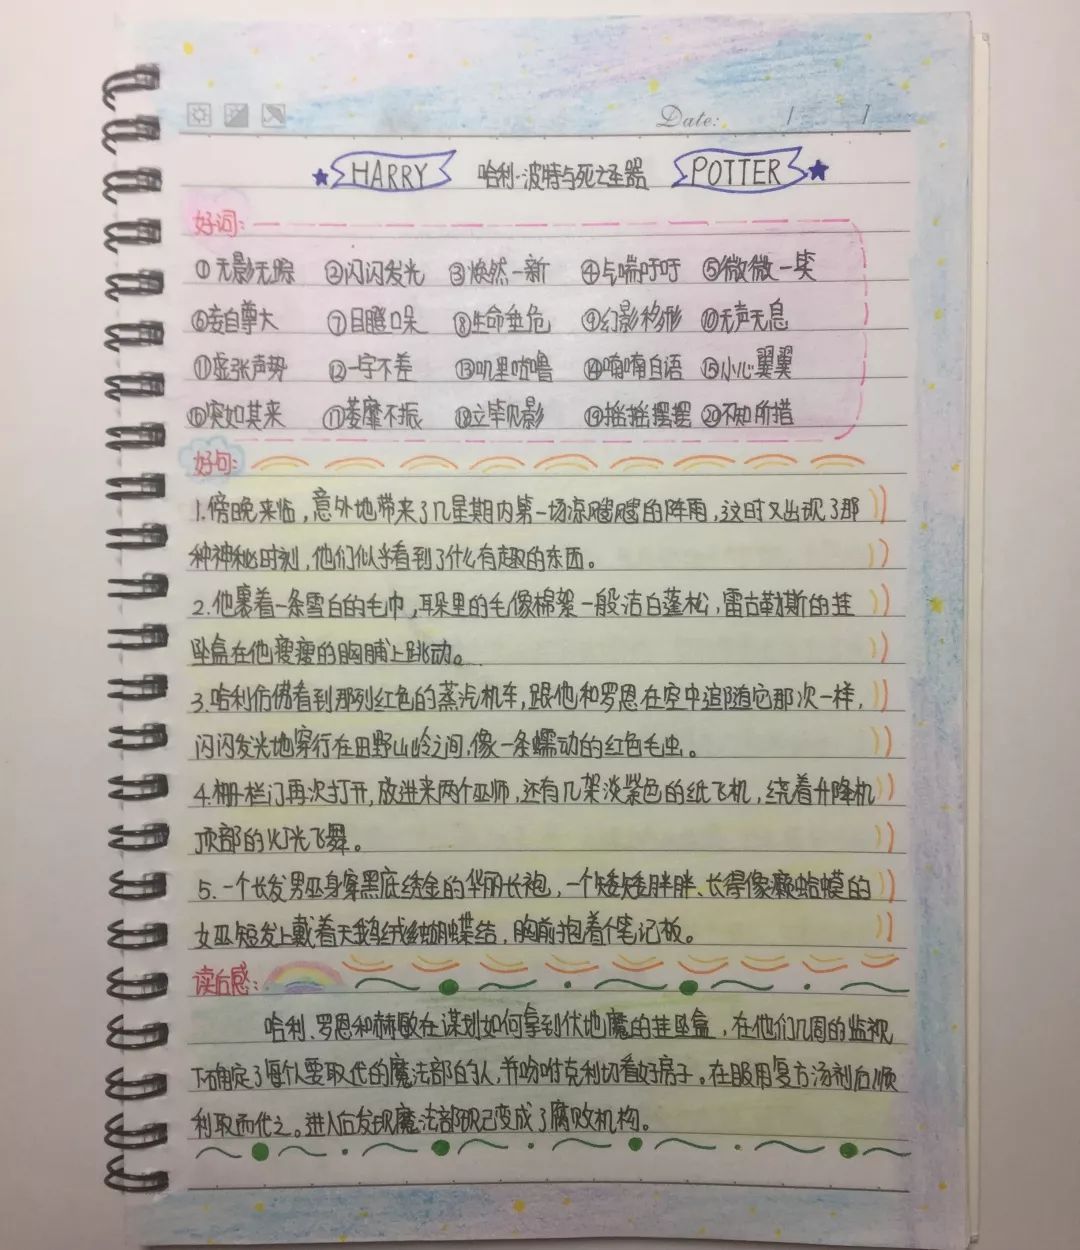 Date: / /
HARRY 哈利·波特与死亡圣器 POTTER
好词:
①无影无踪 ②闪闪发光 ③焕然一新 ④气喘吁吁 ⑤微微一笑
⑥妄自尊大 ⑦目瞪口呆 ⑧生命垂危 ⑨幻影移形 ⑩无声无息
⑪虚张声势 ⑫一字不差 ⑬叽里咕噜 ⑭喃喃自语 ⑮小心翼翼
⑯突如其来 ⑰萎靡不振 ⑱立竿见影 ⑲摇摇摆摆 ⑳不知所措
好句:
1.傍晚来临,意外地带来了几星期内第一场凉飕飕的阵雨,这时又出现了那
种神秘时刻,他们似乎看到了什么有趣的东西。
2.他裹着一条雪白的毛巾,耳朵里的毛像棉絮一般洁白蓬松,雷古勒斯的挂
坠盒在他瘦瘦的胸脯上跳动。
3.哈利仿佛看到那列红色的蒸汽机车,跟他和罗恩在空中追随它那次一样,
闪闪发光地穿行在田野山岭之间,像一条蠕动的红色毛虫。
4.栅栏门再次打开,放进来两个巫师,还有几架淡紫色的纸飞机,绕着升降机
顶部的灯光飞舞。
5.一个长发男巫身穿黑底绣金的华丽长袍,一个矮矮胖胖、长得像癞蛤蟆的
女巫短发上戴着天鹅绒蝴蝶结,胸前抱着个笔记板。
读后感:
哈利、罗恩和赫敏在谋划如何拿到伏地魔的挂坠盒,在他们几周的监视
下确定了每个人要取代的魔法部的人,并吩咐克利切看好房子。在服用复方汤剂后顺
利取而代之。进入后发现魔法部现已变成了腐败机构。